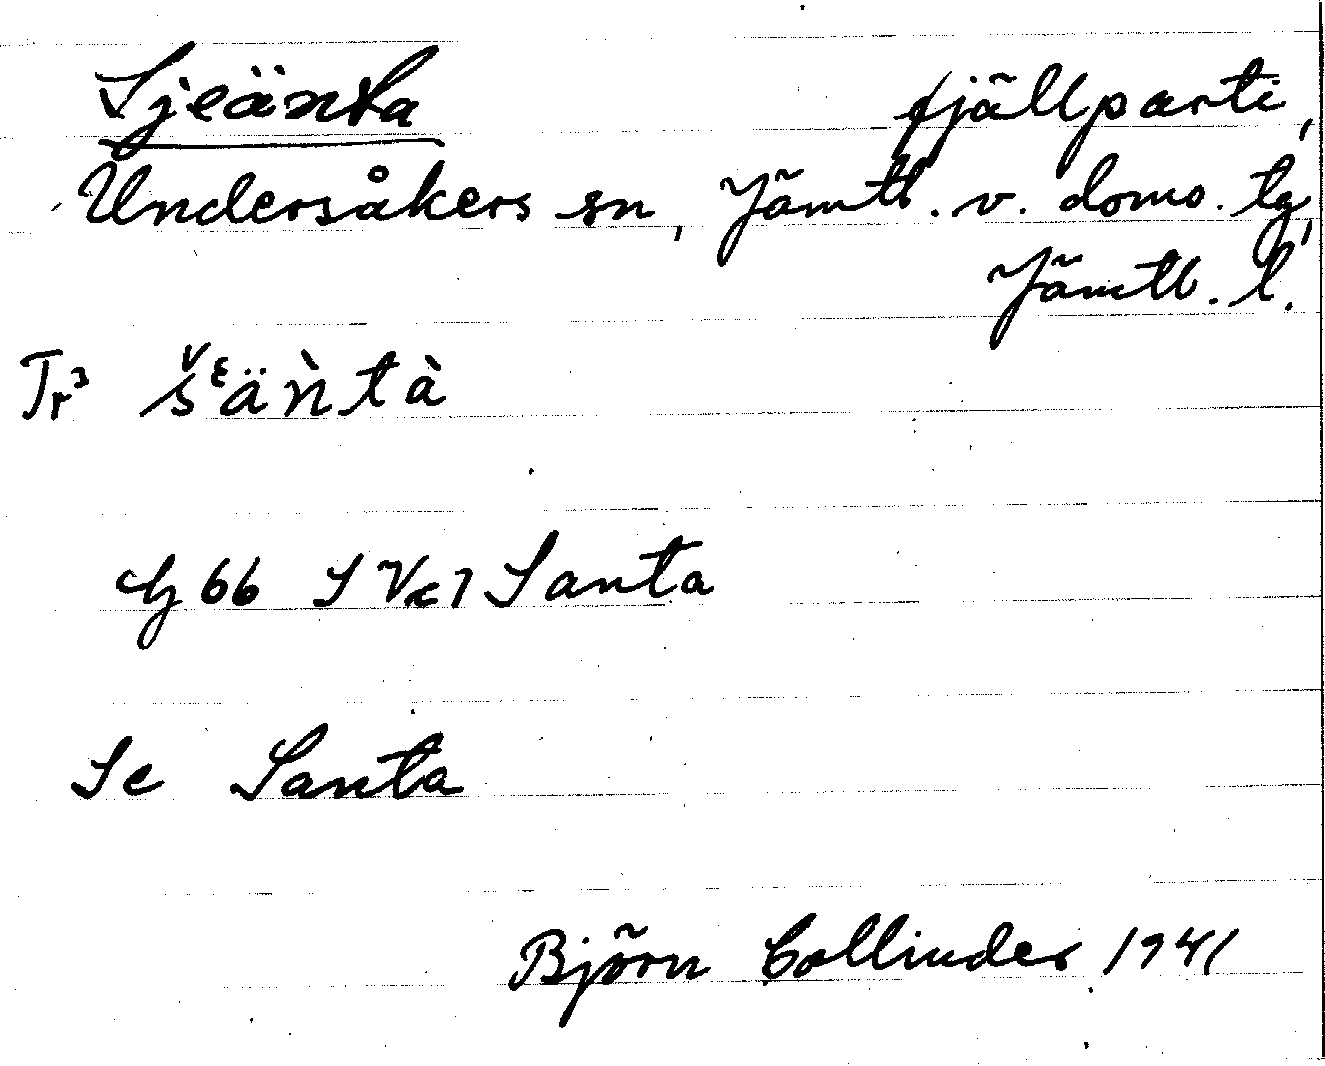 Sjeänta fjällparti,
Undersåkers sn, Jämtl. v. doms. tg,
Jämtl. l.
Tr³ šᵋäǹtà
G 66 S Vc7 Santa
Se Santa
Björn Collinder 1941